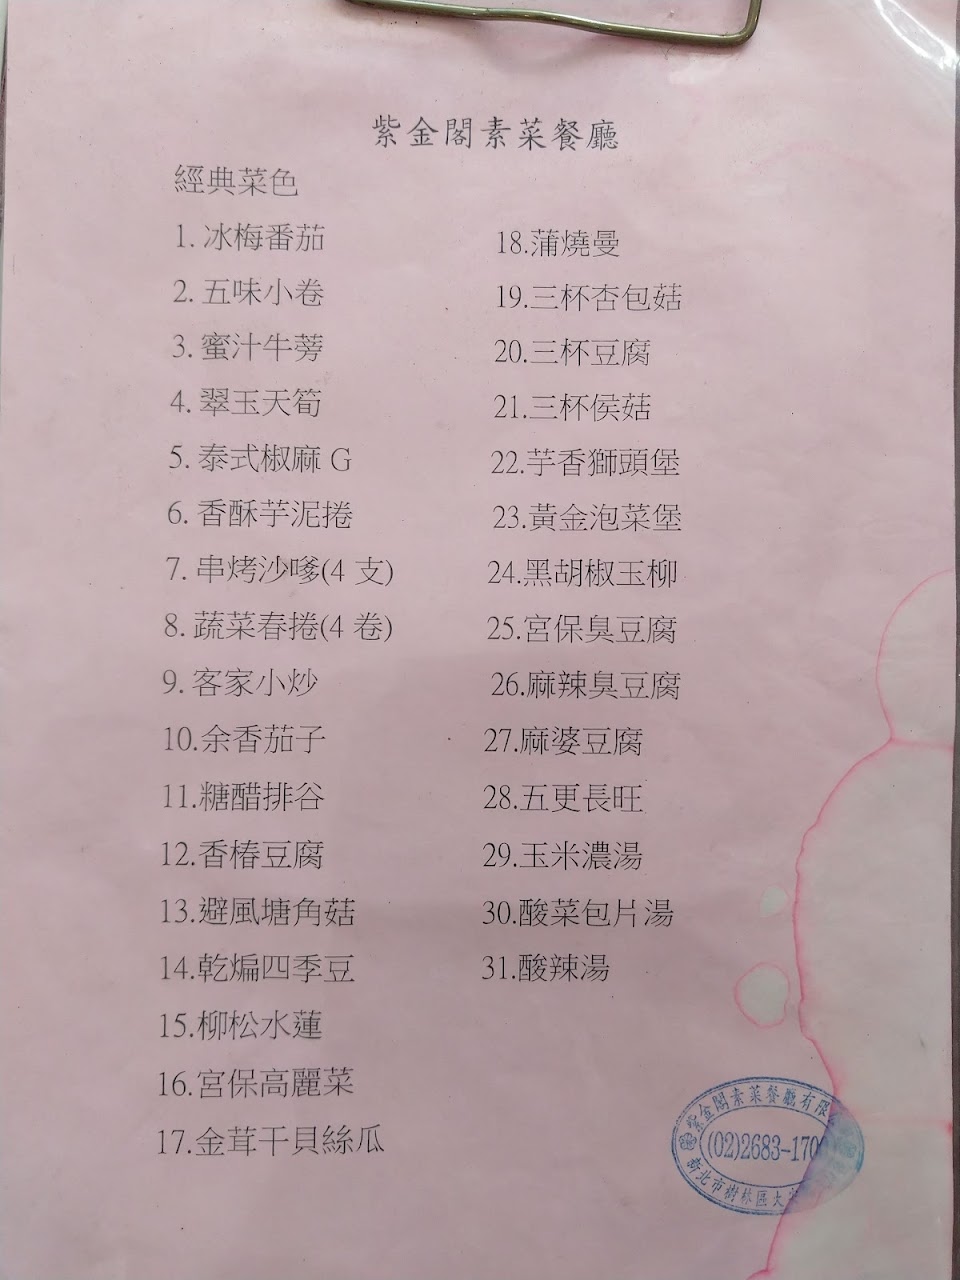 紫金閣素菜餐廳
經典菜色
1. 冰梅番茄
2. 五味小卷
3. 蜜汁牛蒡
4. 翠玉天筍
5. 泰式椒麻 G
6. 香酥芋泥捲
7. 串烤沙嗲(4 支)
8. 蔬菜春捲(4 卷)
9. 客家小炒
10.余香茄子
11.糖醋排谷
12.香椿豆腐
13.避風塘角菇
14.乾煸四季豆
15.柳松水蓮
16.宮保高麗菜
17.金茸干貝絲瓜
18.蒲燒曼
19.三杯杏包菇
20.三杯豆腐
21.三杯侯菇
22.芋香獅頭堡
23.黃金泡菜堡
24.黑胡椒玉柳
25.宮保臭豆腐
26.麻辣臭豆腐
27.麻婆豆腐
28.五更長旺
29.玉米濃湯
30.酸菜包片湯
31.酸辣湯
紫金閣素菜餐廳有限
(02)2683-170
新北市樹林區大